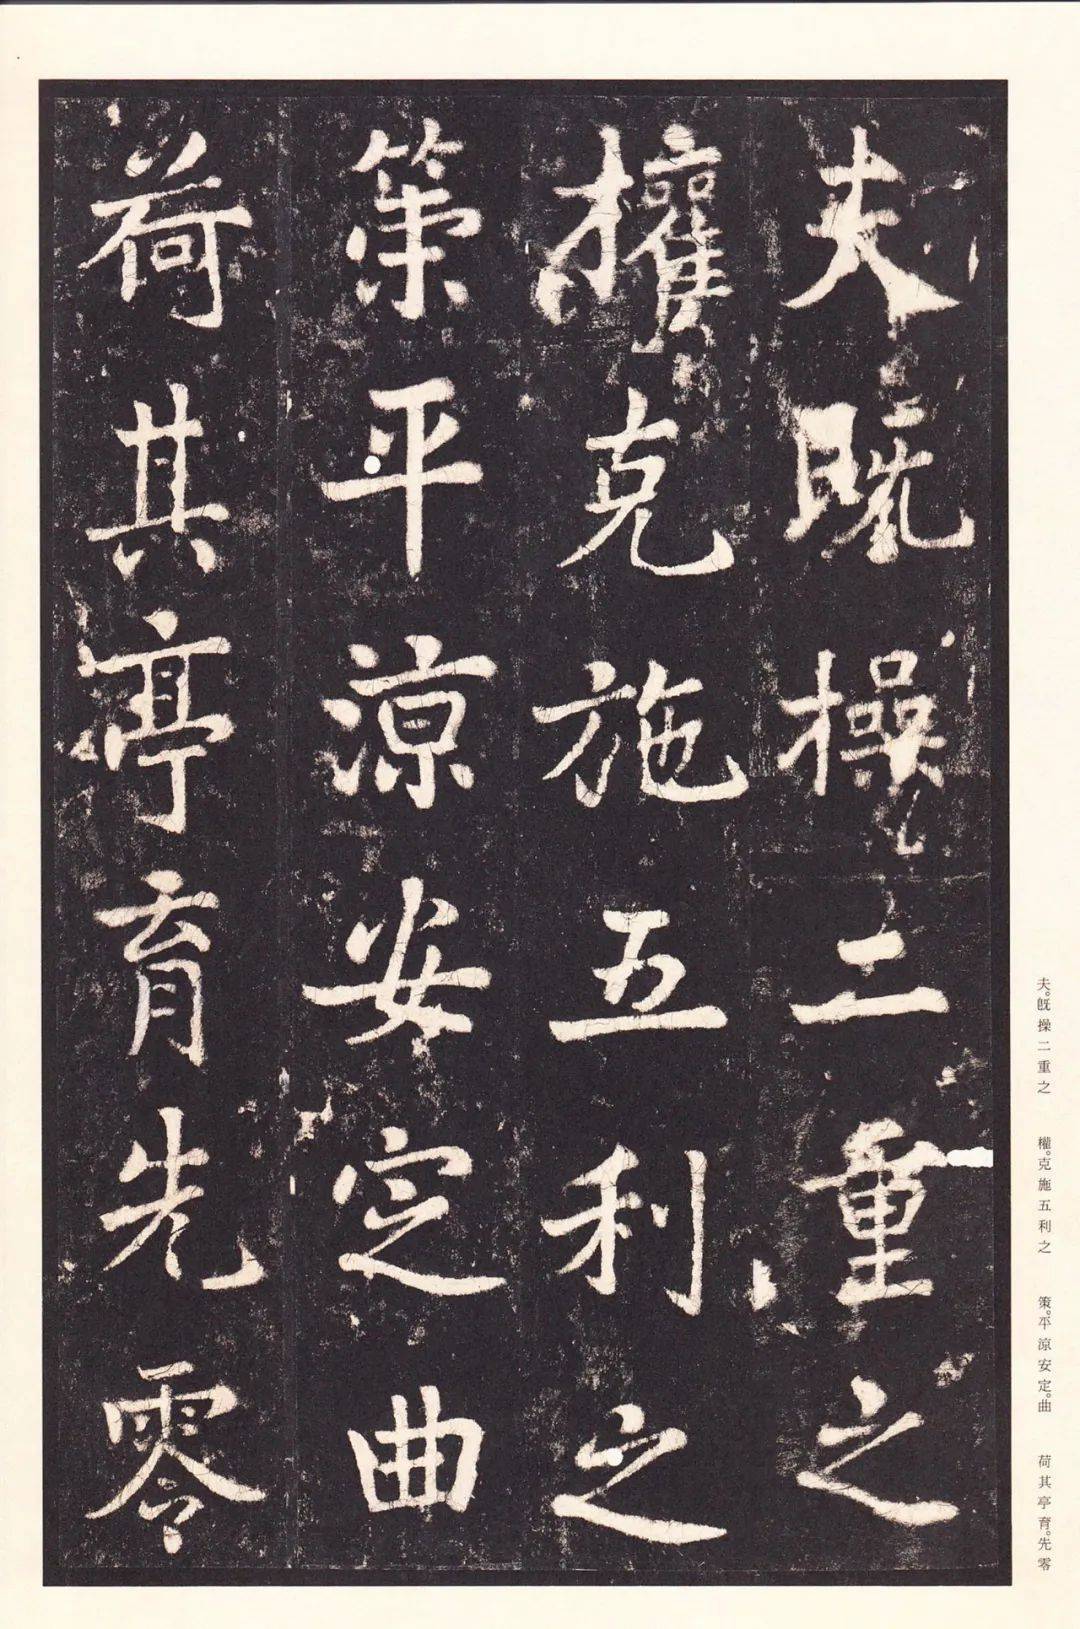 夫既操二重之
權克施五利之
策平涼安定曲
荷其亭育先零
夫。既操二重之 權。克施五利之 策。平涼安定。曲 荷其亭育。先零